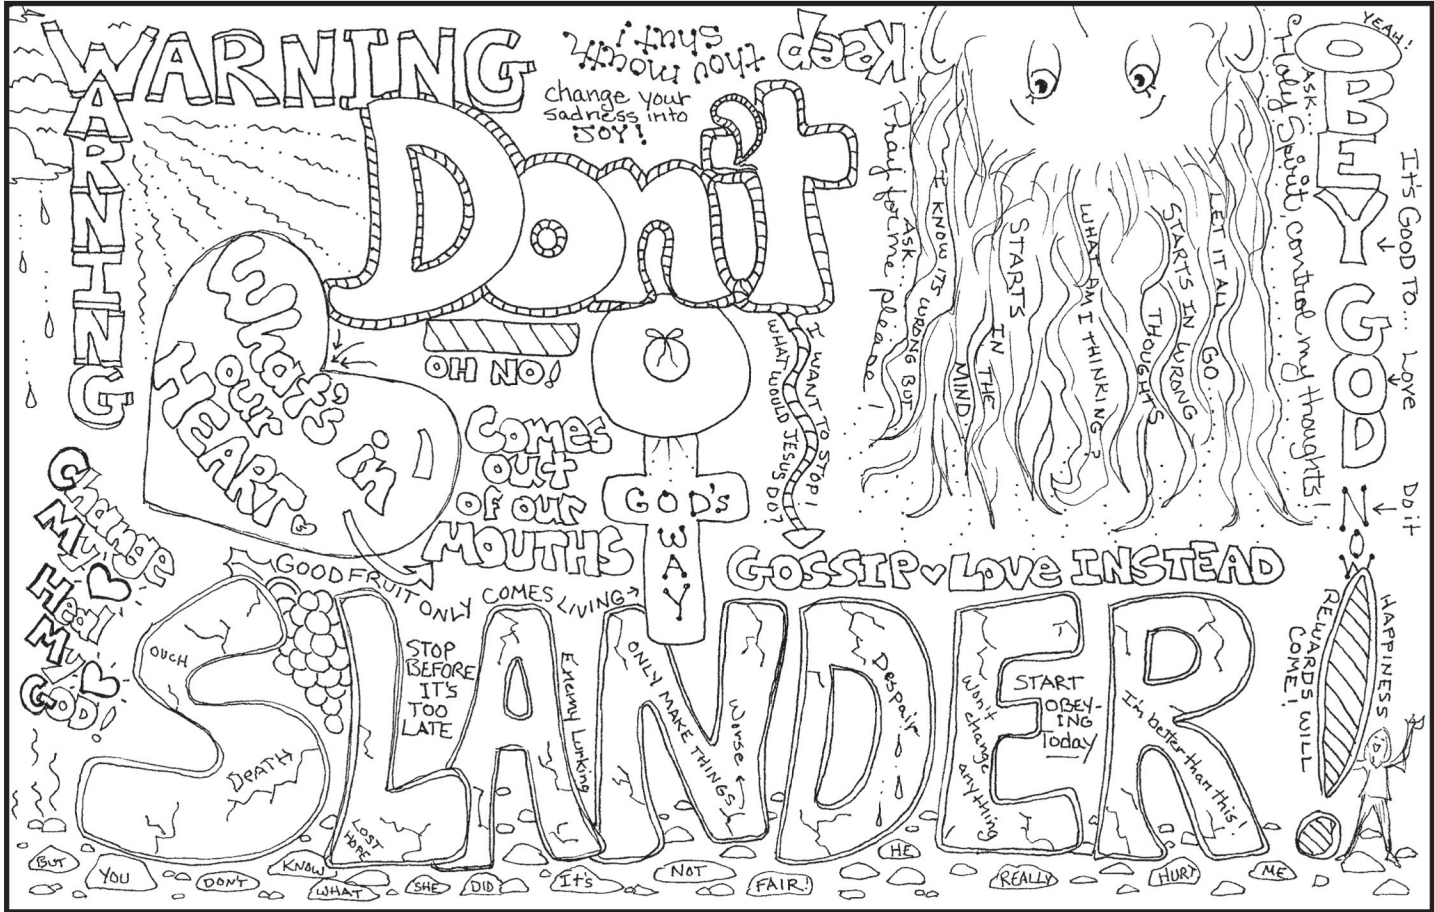 WARNING
WARNING
Don't
Keep
thou mouth
shut!
change your
sadness into
JOY!
What's in
our
HEART
Comes
out
of our
MOUTHS
OH NO!
GOD'S
WAY
I WANT TO STOP!
WHAT WOULD JESUS DO?
Pray for me please!
Ask...
I KNOW IT'S WRONG BUT
STARTS
IN THE
MIND
WHAT AM I THINKING?
STARTS IN WRONG
THOUGHTS
LET IT ALL GO
ASK...
Holy Spirit, control my thoughts!
YEAH!
OBEY GOD
NOW
It's GOOD TO... Love
Do it
Change
My
Heal
My
GOD!
GOOD FRUIT ONLY COMES LIVING
GOSSIP LOVE INSTEAD
SLANDER!
OUCH
DEATH
LOST
HOPE
STOP
BEFORE
IT'S
TOO
LATE
Enemy Lurking
ONLY MAKE THINGS
Worse
Despair
Won't change
anything
START
OBEY-
ING
Today
I'm better than this!
REWARDS WILL
COME!
HAPPINESS
BUT YOU DON'T KNOW WHAT SHE DID It's NOT FAIR! HE REALLY HURT ME